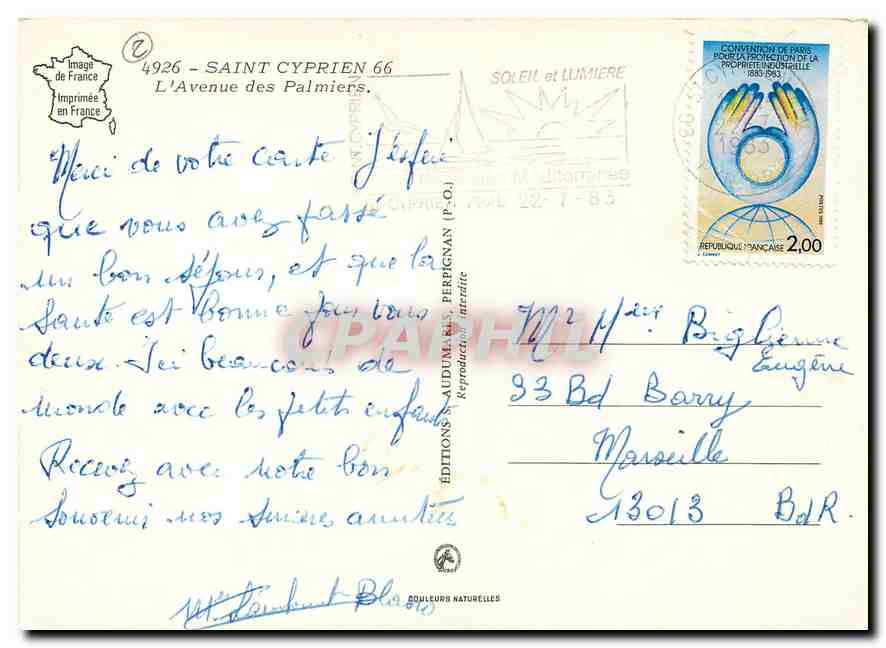 Image
de France
Imprimée
en France
2
4926 - SAINT CYPRIEN 66
L'Avenue des Palmiers.
Merci de votre carte J'espère
que vous avez passé
un bon séjour, et que la
santé est bonne pour vous
deux. Ici beaucoup de
monde avec les petits enfants
Recevez avec notre bon
souvenir nos sincères amitiés
Blanc
SOLEIL et LUMIERE
22-7-83
ÉDITIONS S. AUDUMARES, PERPIGNAN (P.-O.)
Reproduction interdite
COULEURS NATURELLES
CPARAMA
CONVENTION DE PARIS
POUR LA PROTECTION DE LA
PROPRIÉTÉ INDUSTRIELLE
1883-1983
1983
RÉPUBLIQUE FRANÇAISE 2,00
Eugène
93 Bd Barry
Marseille
13013 BdR